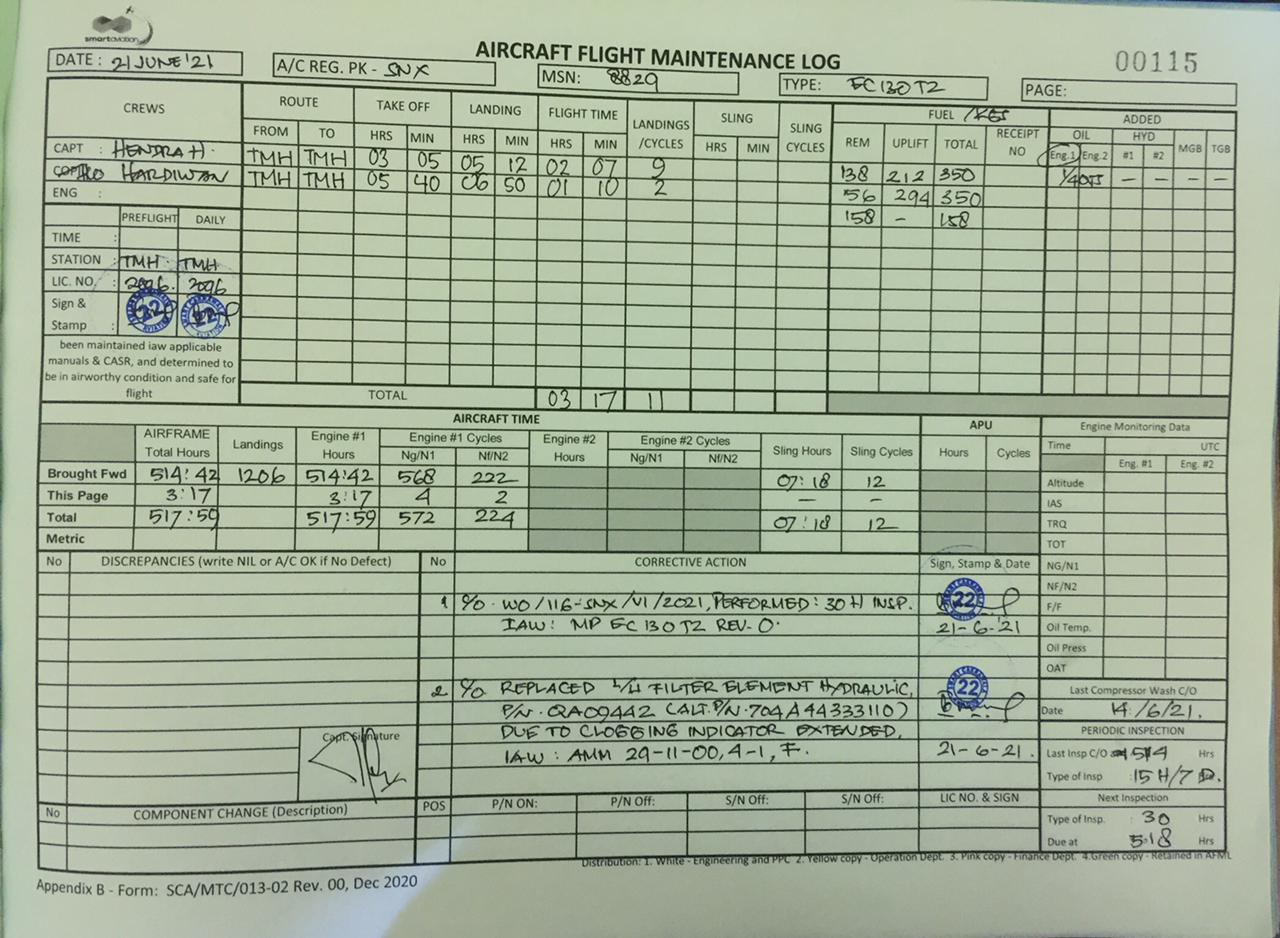 smartaviation
AIRCRAFT FLIGHT MAINTENANCE LOG
00115
DATE : 21 JUNE '21
A/C REG. PK - SNX
MSN: 8829
TYPE: EC 130 T2
PAGE:
CREWS ROUTE TAKE OFF LANDING FLIGHT TIME LANDINGS /CYCLES SLING SLING CYCLES FUEL /KGS ADDED
FROM TO HRS MIN HRS MIN HRS MIN HRS MIN REM UPLIFT TOTAL RECEIPT NO OIL HYD MGB TGB
Eng.1 Eng.2 #1 #2
CAPT : HENDRA H.
TMH TMH 03 05 05 12 02 07 9 138 212 350 — — — — —
HARDIWAN
TMH TMH 05 40 06 50 01 10 2 56 294 350
ENG :
158 - 158
PREFLIGHT DAILY
TIME :
STATION : TMH TMH
LIC. NO. : 2096 2096
Sign & Stamp : 22 22
been maintained iaw applicable
manuals & CASR, and determined to
be in airworthy condition and safe for
flight
TOTAL 03 17 11
AIRCRAFT TIME
AIRFRAME Total Hours Landings Engine #1 Hours Engine #1 Cycles Ng/N1 Nf/N2 Engine #2 Hours Engine #2 Cycles Ng/N1 Nf/N2 Sling Hours Sling Cycles APU Hours Cycles
Brought Fwd 514:42 1206 514:42 568 222 07:18 12
This Page 3:17 3:17 4 2 — -
Total 517:59 517:59 572 224 07:18 12
Metric
Engine Monitoring Data
Time UTC
Eng. #1 Eng. #2
Altitude
IAS
TRQ
TOT
NG/N1
NF/N2
F/F
Oil Temp.
Oil Press
OAT
No DISCREPANCIES (write NIL or A/C OK if No Defect) No CORRECTIVE ACTION Sign, Stamp & Date
1 C/O. WO/116-SNX/VI/2021, PERFORMED: 30 H INSP. 22
IAW: MP EC 130 T2 REV-0. 21-6-'21
2 C/O REPLACED L/H FILTER ELEMENT HYDRAULIC, 22
P/N. QA09442 (ALT. P/N. 704A44333110)
DUE TO CLOGGING INDICATOR EXTENDED,
IAW: AMM 29-11-00, 4-1, F. 21-6-21.
Capt. Signature
Last Compressor Wash C/O
Date 14/6/21.
PERIODIC INSPECTION
Last Insp C/O 514 Hrs
Type of Insp : 15 H/7 D.
Next Inspection
Type of Insp. : 30 Hrs
Due at 518 Hrs
No COMPONENT CHANGE (Description) POS P/N ON: P/N Off: S/N Off: S/N Off: LIC NO. & SIGN
Distribution: 1. White - Engineering and PPC 2. Yellow copy - Operation Dept. 3. Pink copy - Finance Dept. 4.Green copy - Retained in AFML
Appendix B - Form: SCA/MTC/013-02 Rev. 00, Dec 2020